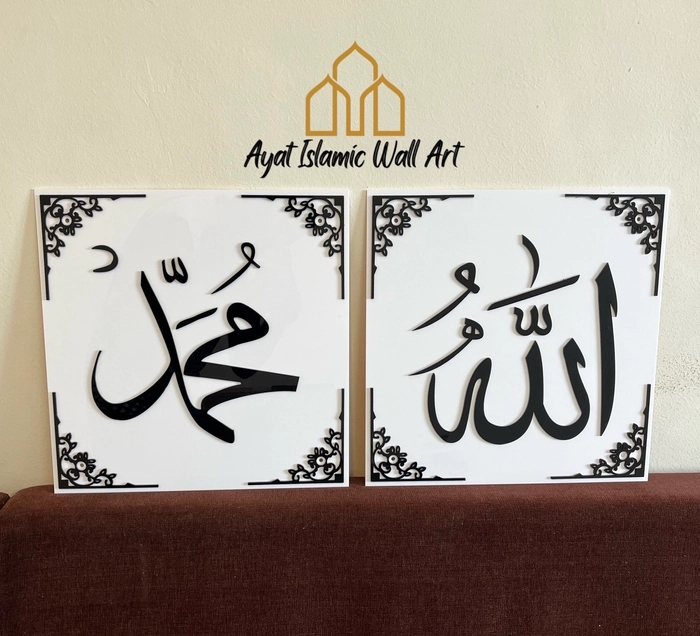 Ayat Islamic Wall Art
اللّٰهُ
مُحَمَّد